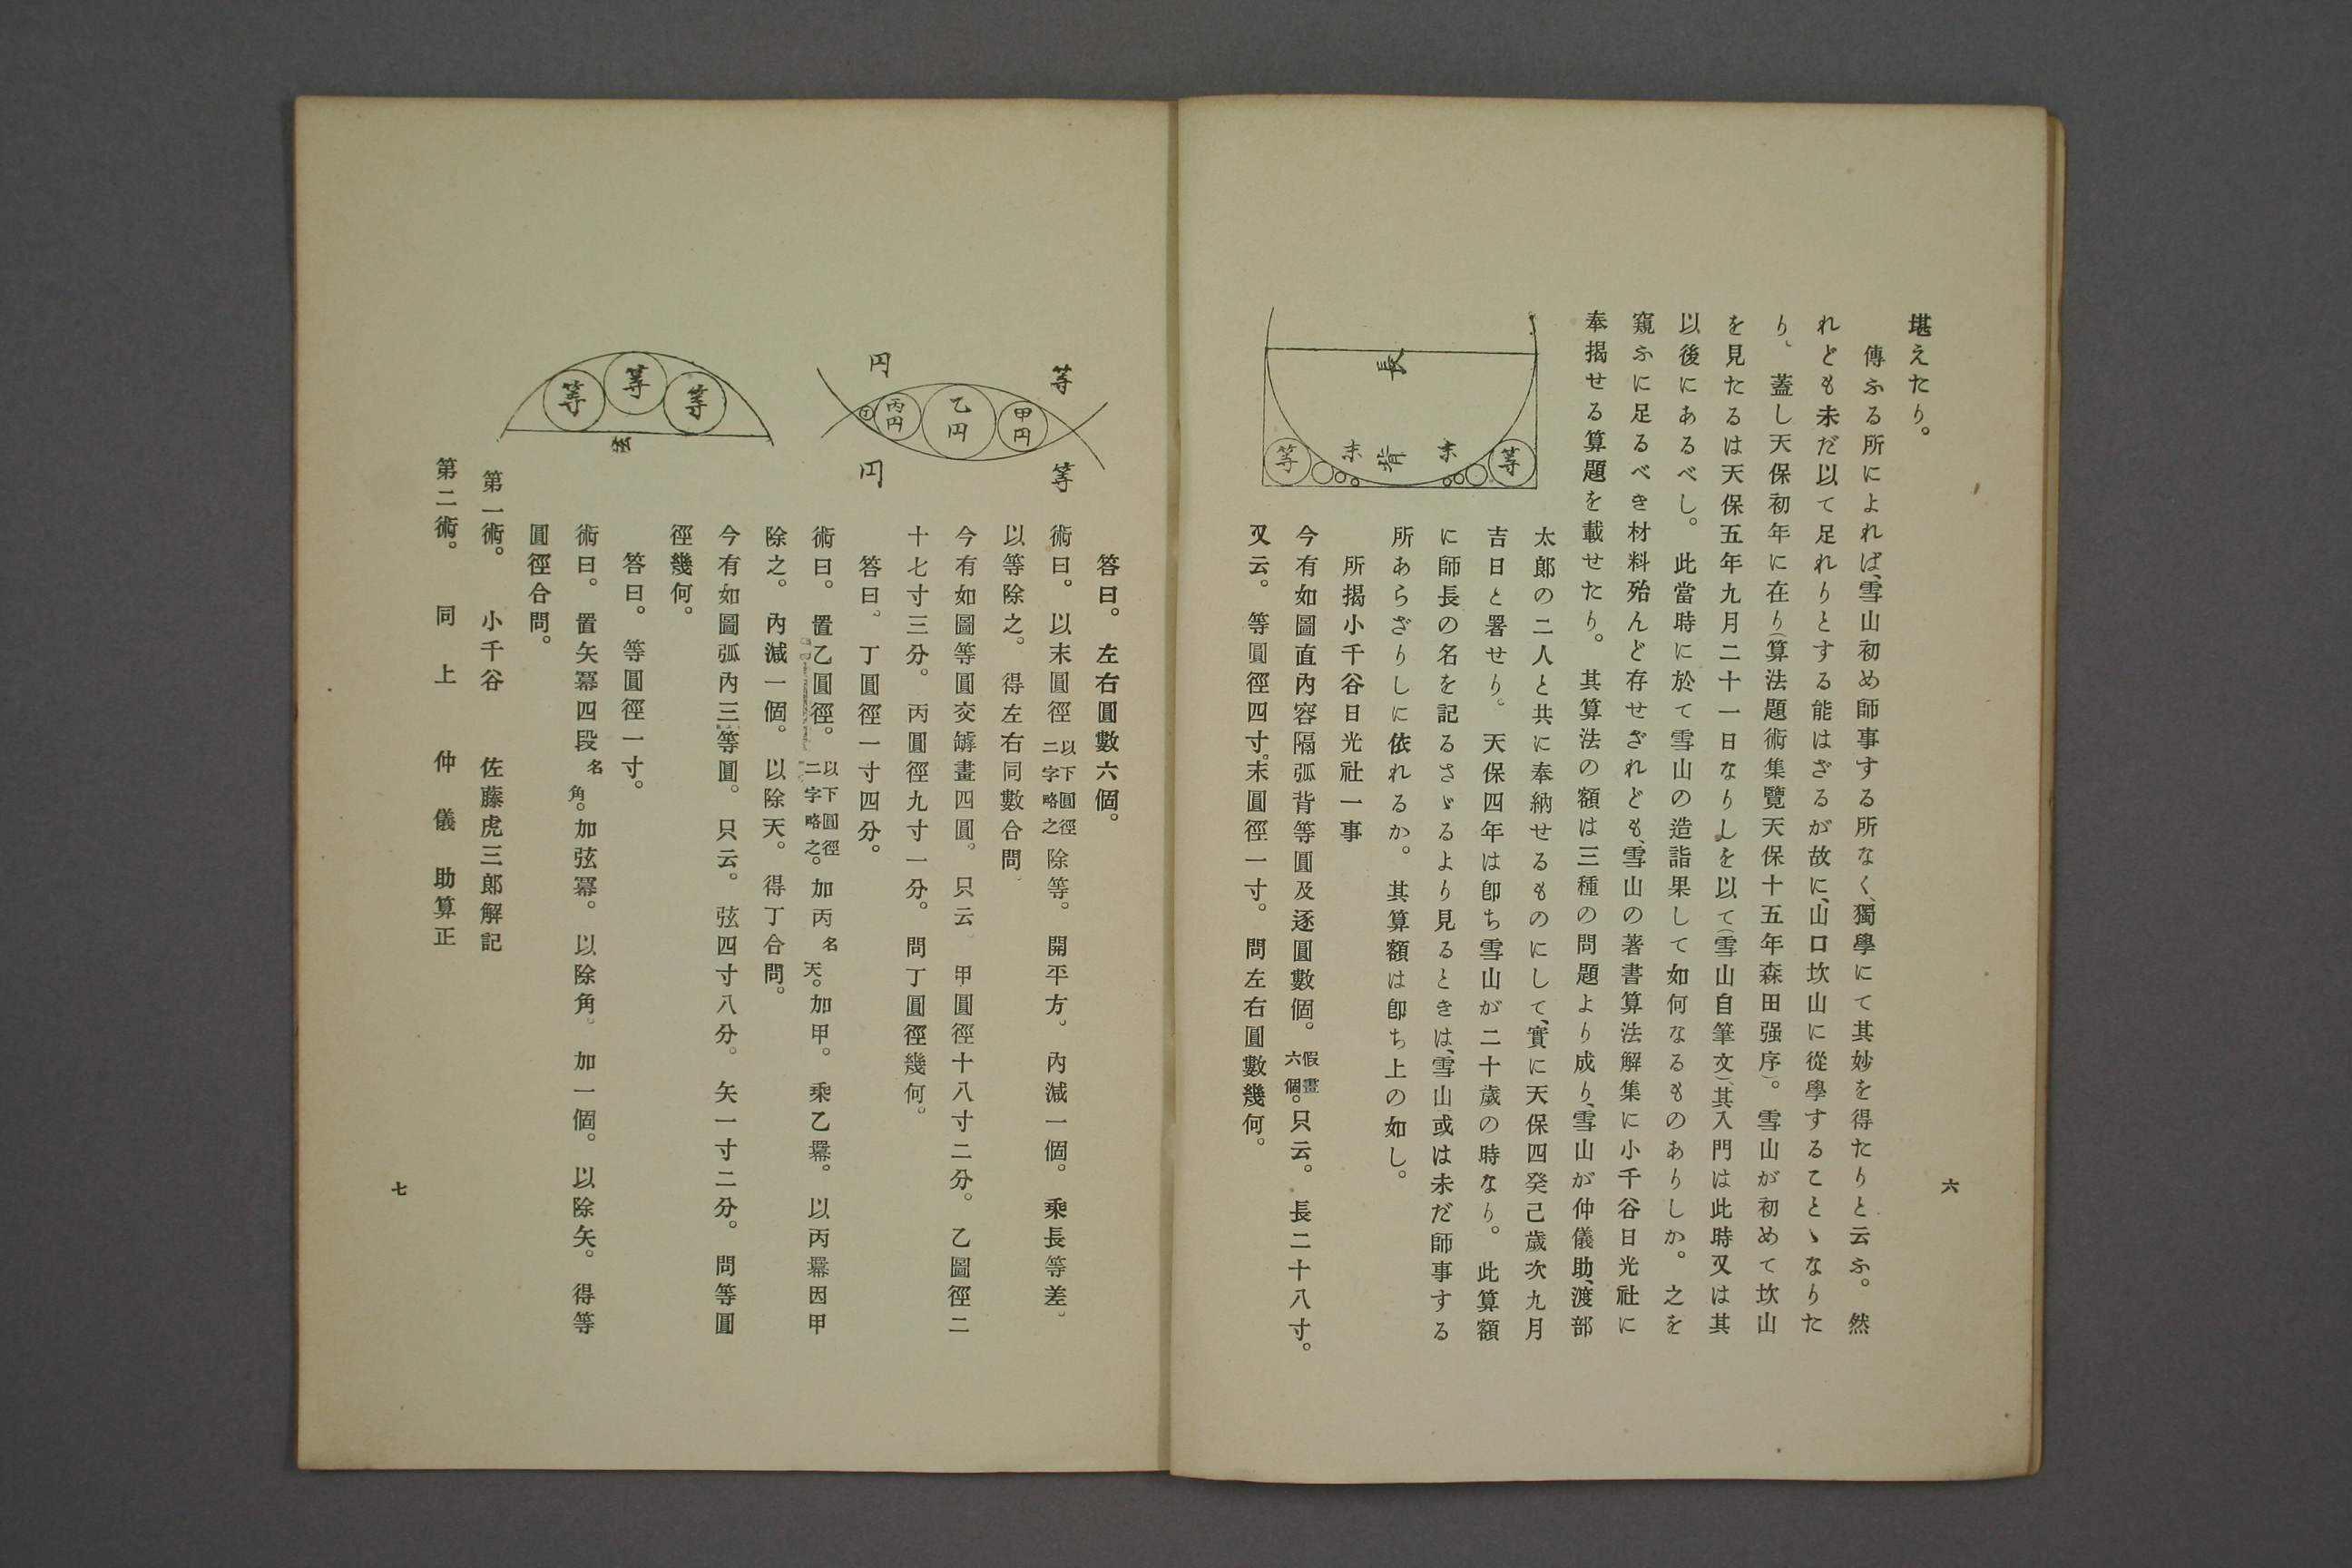 六
堪えたり。
傳ふる所によれば、雪山初め師事する所なく、獨學にて其妙を得たりと云ふ。然
れども未だ以て足れりとする能はざるが故に、山口坎山に從學することゝなりた
り。蓋し天保初年に在り(算法題術集覽天保十五年森田强序)。雪山が初めて坎山
を見たるは天保五年九月二十一日なりしを以て(雪山自筆文)、其入門は此時又は其
以後にあるべし。此當時に於て雪山の造詣果して如何なるものありしか。之を
窺ふに足るべき材料殆んど存せざれども、雪山の著書算法解集に小千谷日光社に
奉揭せる算題を載せたり。其算法の額は三種の問題より成り、雪山が仲儀助、渡部
太郞の二人と共に奉納せるものにして、實に天保四癸己歲次九月
吉日と署せり。天保四年は卽ち雪山が二十歲の時なり。此算額
に師長の名を記るさゞるより見るときは、雪山或は未だ師事する
所あらざりしに依れるか。其算額は卽ち上の如し。
所揭小千谷日光社一事
今有如圖直內容隔弧背等圓及逐圓數個。假畫六個。只云。長二十八寸。
又云。等圓徑四寸。末圓徑一寸。問左右圓數幾何。
長
等
末
背
末
等
答曰。左右圓數六個。
術曰。以末圓徑以下圓徑二字略之除等。開平方。內減一個。乘長等差。
以等除之。得左右同數合問。
今有如圖等圓交罅畫四圓。只云。甲圓徑十八寸二分。乙圖徑二
十七寸三分。丙圓徑九寸一分。問丁圓徑幾何。
答曰。丁圓徑一寸四分。
術曰。置乙圓徑。以下圓徑二字略之。加丙名天。加甲。乘乙羃。以丙羃因甲
除之。內減一個。以除天。得丁合問。
今有如圖弧內三等圓。只云。弦四寸八分。矢一寸二分。問等圓
徑幾何。
答曰。等圓徑一寸。
術曰。置矢冪四段名角。加弦冪。以除角。加一個。以除矢。得等
圓徑合問。
第一術。小千谷 佐藤虎三郞解記
第二術。同上 仲儀助算正
等
円
甲円
乙円
丙円
丁
等
円
等
等
等
弦
七